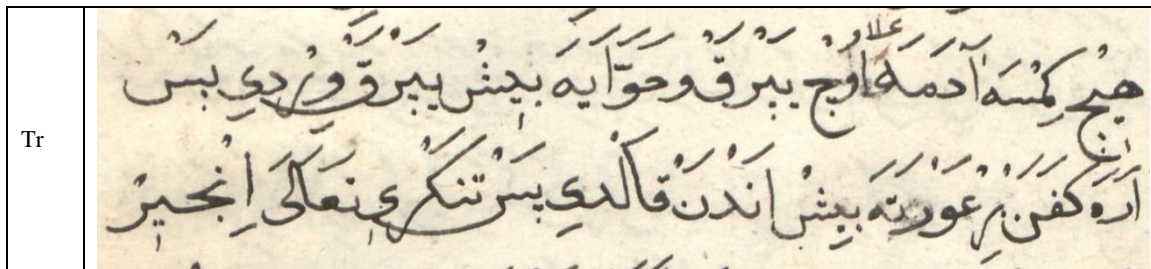 Tr
هيچ كِمْسَه آدَمَه ع‌لا اُوْچ يَپْرَقْ و حَوَّايَه بِيشْ يَپْرَقْ وِرْدِي بَسْ
اَرَه كَفَنْ بِرْ عَوْرَتَه بِيشْ اَنْدَنْ قَالْدِي بَسْ تَنْكْرِي تَعَالَى اِنْجِيرْ